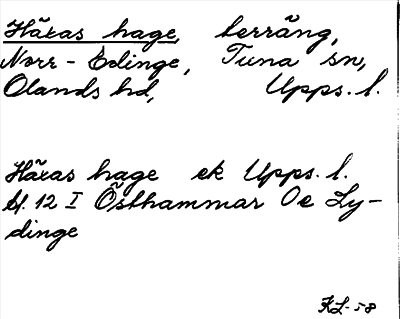 Häxas hage, berräng,
Norr-Edinge, Tuna sn,
Olands hd, Upps. l.
Häxas hage ek Upps. l.
bl. 12 I Östhammar Oe Ly-
dinge
KL-58